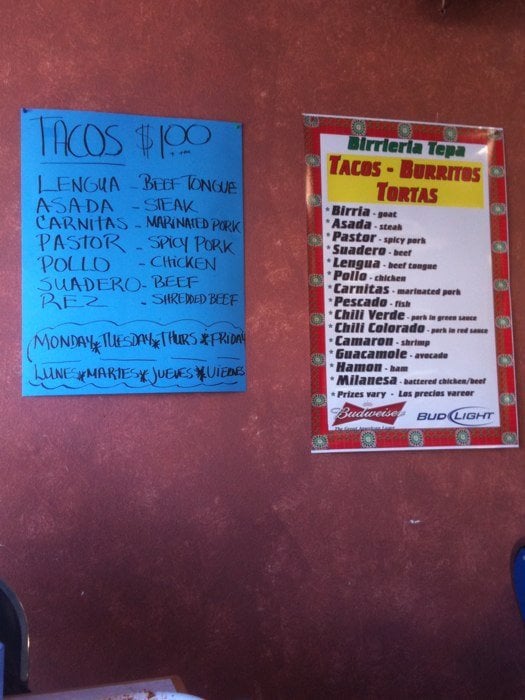 TACOS $1.00
LENGUA - BEEF TONGUE
ASADA - STEAK
CARNITAS - MARINATED PORK
PASTOR - SPICY PORK
POLLO - CHICKEN
SUADERO - BEEF
REZ - SHREDDED BEEF
MONDAY*TUESDAY*THURS*FRIDAY
LUNES*MARTES*JUEVES*VIERNES
Birrieria Tepa
TACOS - BURRITOS
TORTAS
* Birria - goat
* Asada - steak
* Pastor - spicy pork
* Suadero - beef
* Lengua - beef tongue
* Pollo - chicken
* Carnitas - marinated pork
* Pescado - fish
* Chili Verde - pork in green sauce
* Chili Colorado - pork in red sauce
* Camaron - shrimp
* Guacamole - avocado
* Hamon - ham
* Milanesa - battered chicken/beef
* Prizes vary - Los precios vareor
Budweiser
The Great American Lager
BUD LIGHT